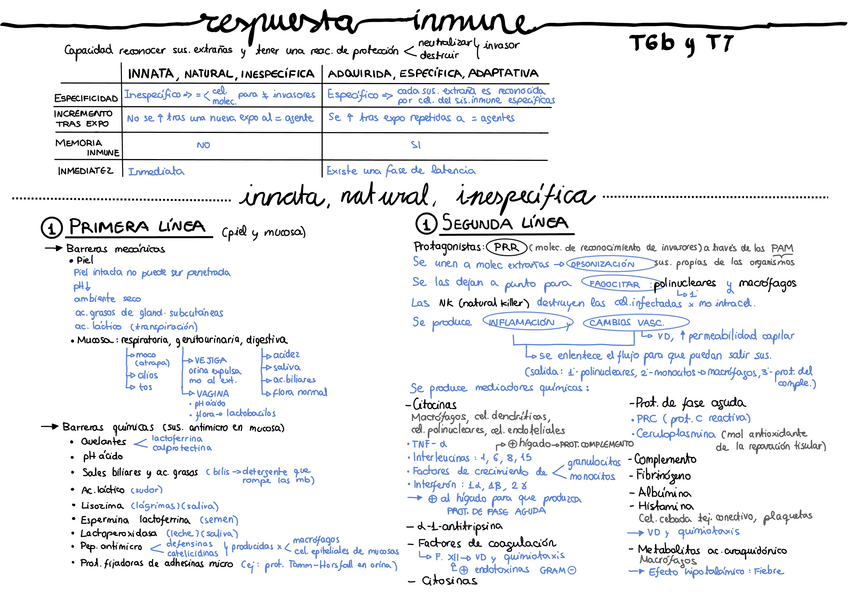 respuesta inmune
T6b y T7
Capacidad reconocer sus. extrañas y tener una reac. de protección < neutralizar y destruir invasor
INNATA, NATURAL, INESPECÍFICA | ADQUIRIDA, ESPECÍFICA, ADAPTATIVA
ESPECIFICIDAD | Inespecífico => = < cel. molec. para ≠ invasores | Específico => cada sus. extraña es reconocida por cel. del sis. inmune específicas
INCREMENTO TRAS EXPO | No se ↑ tras una nueva expo al = agente | Se ↑ tras expo repetidas a = agentes
MEMORIA INMUNE | NO | SI
INMEDIATEZ | Inmediata | Existe una fase de latencia
innata, natural, inespecífica
① PRIMERA LÍNEA (piel y mucosa)
→ Barreras mecánicas
• Piel
Piel intacta no puede ser penetrada
pH↓
ambiente seco
ac. grasos de gland. subcutáneas
ac. láctico (transpiración)
• Mucosa: respiratoria, genitourinaria, digestiva
→ moco (atrapa)
→ cilios
→ tos
→ VEJIGA
orina expulsa
mo al ext.
→ VAGINA
• pH ácido
• flora → lactobacilos
→ acidez
→ saliva
→ ac. biliares
→ flora normal
→ Barreras químicas (sus. antimicro en mucosa)
• Quelantes < lactoferrina calprotectina
• pH ácido
• Sales biliares y ac. grasos (bilis → detergente que rompe las mb)
• Ac. láctico (sudor)
• Lisozima (lágrimas) (saliva)
• Espermina lactoferrina (semen)
• Lactoperoxidasa (leche) (saliva)
• Pep. antimicro < defensinas catelicidinas y producidas x < macrófagos cel. epiteliales de mucosas
• Prot. fijadoras de adhesinas micro (ej: prot. Tamm-Horsfall en orina)
① SEGUNDA LÍNEA
Protagonistas: PRR (molec. de reconocimiento de invasores) a través de las PAM
sus. propias de los organismos
Se unen a molec extrañas → OPSONIZACIÓN
Se las dejan a punto para FAGOCITAR: polinucleares y macrófagos
↳ 1º
Las NK (natural killer) destruyen las cel. infectadas x mo intracel.
Se produce INFLAMACIÓN y CAMBIOS VASC.
↳ VD, ↑ permeabilidad capilar
↳ se enlentece el flujo para que puedan salir sus.
(salida: 1º polinucleares, 2º monocitos → macrófagos, 3º prot. del comple.)
Se produce mediadores químicos:
- Citocinas
Macrófagos, cel. dendríticas,
cel. polinucleares, cel. endoteliales
• TNF-α → ⊕ hígado → PROT. COMPLEMENTO
• Interleucinas: 1, 6, 8, 15
• Factores de crecimiento de < granulocitos monocitos
• Interferón: 1α, 1β, 2γ
→ ⊕ al hígado para que produzca
PROT. DE FASE AGUDA
- α-1-antitripsina
- Factores de coagulación
↳ F. XII → VD y quimiotaxis
↳ ⊕ endotoxinas GRAM ⊖
- Citosinas
- Prot. de fase aguda
• PRC (prot. C reactiva)
• Ceruloplasmina (mol antioxidante
de la reparación tisular)
- Complemento
- Fibrinógeno
- Albúmina
- Histamina
Cel. cebada tej. conectivo, plaquetas
→ VD y quimiotaxis
- Metabolitos ac. araquidónico
Macrófagos
→ Efecto hipotalámico: Fiebre